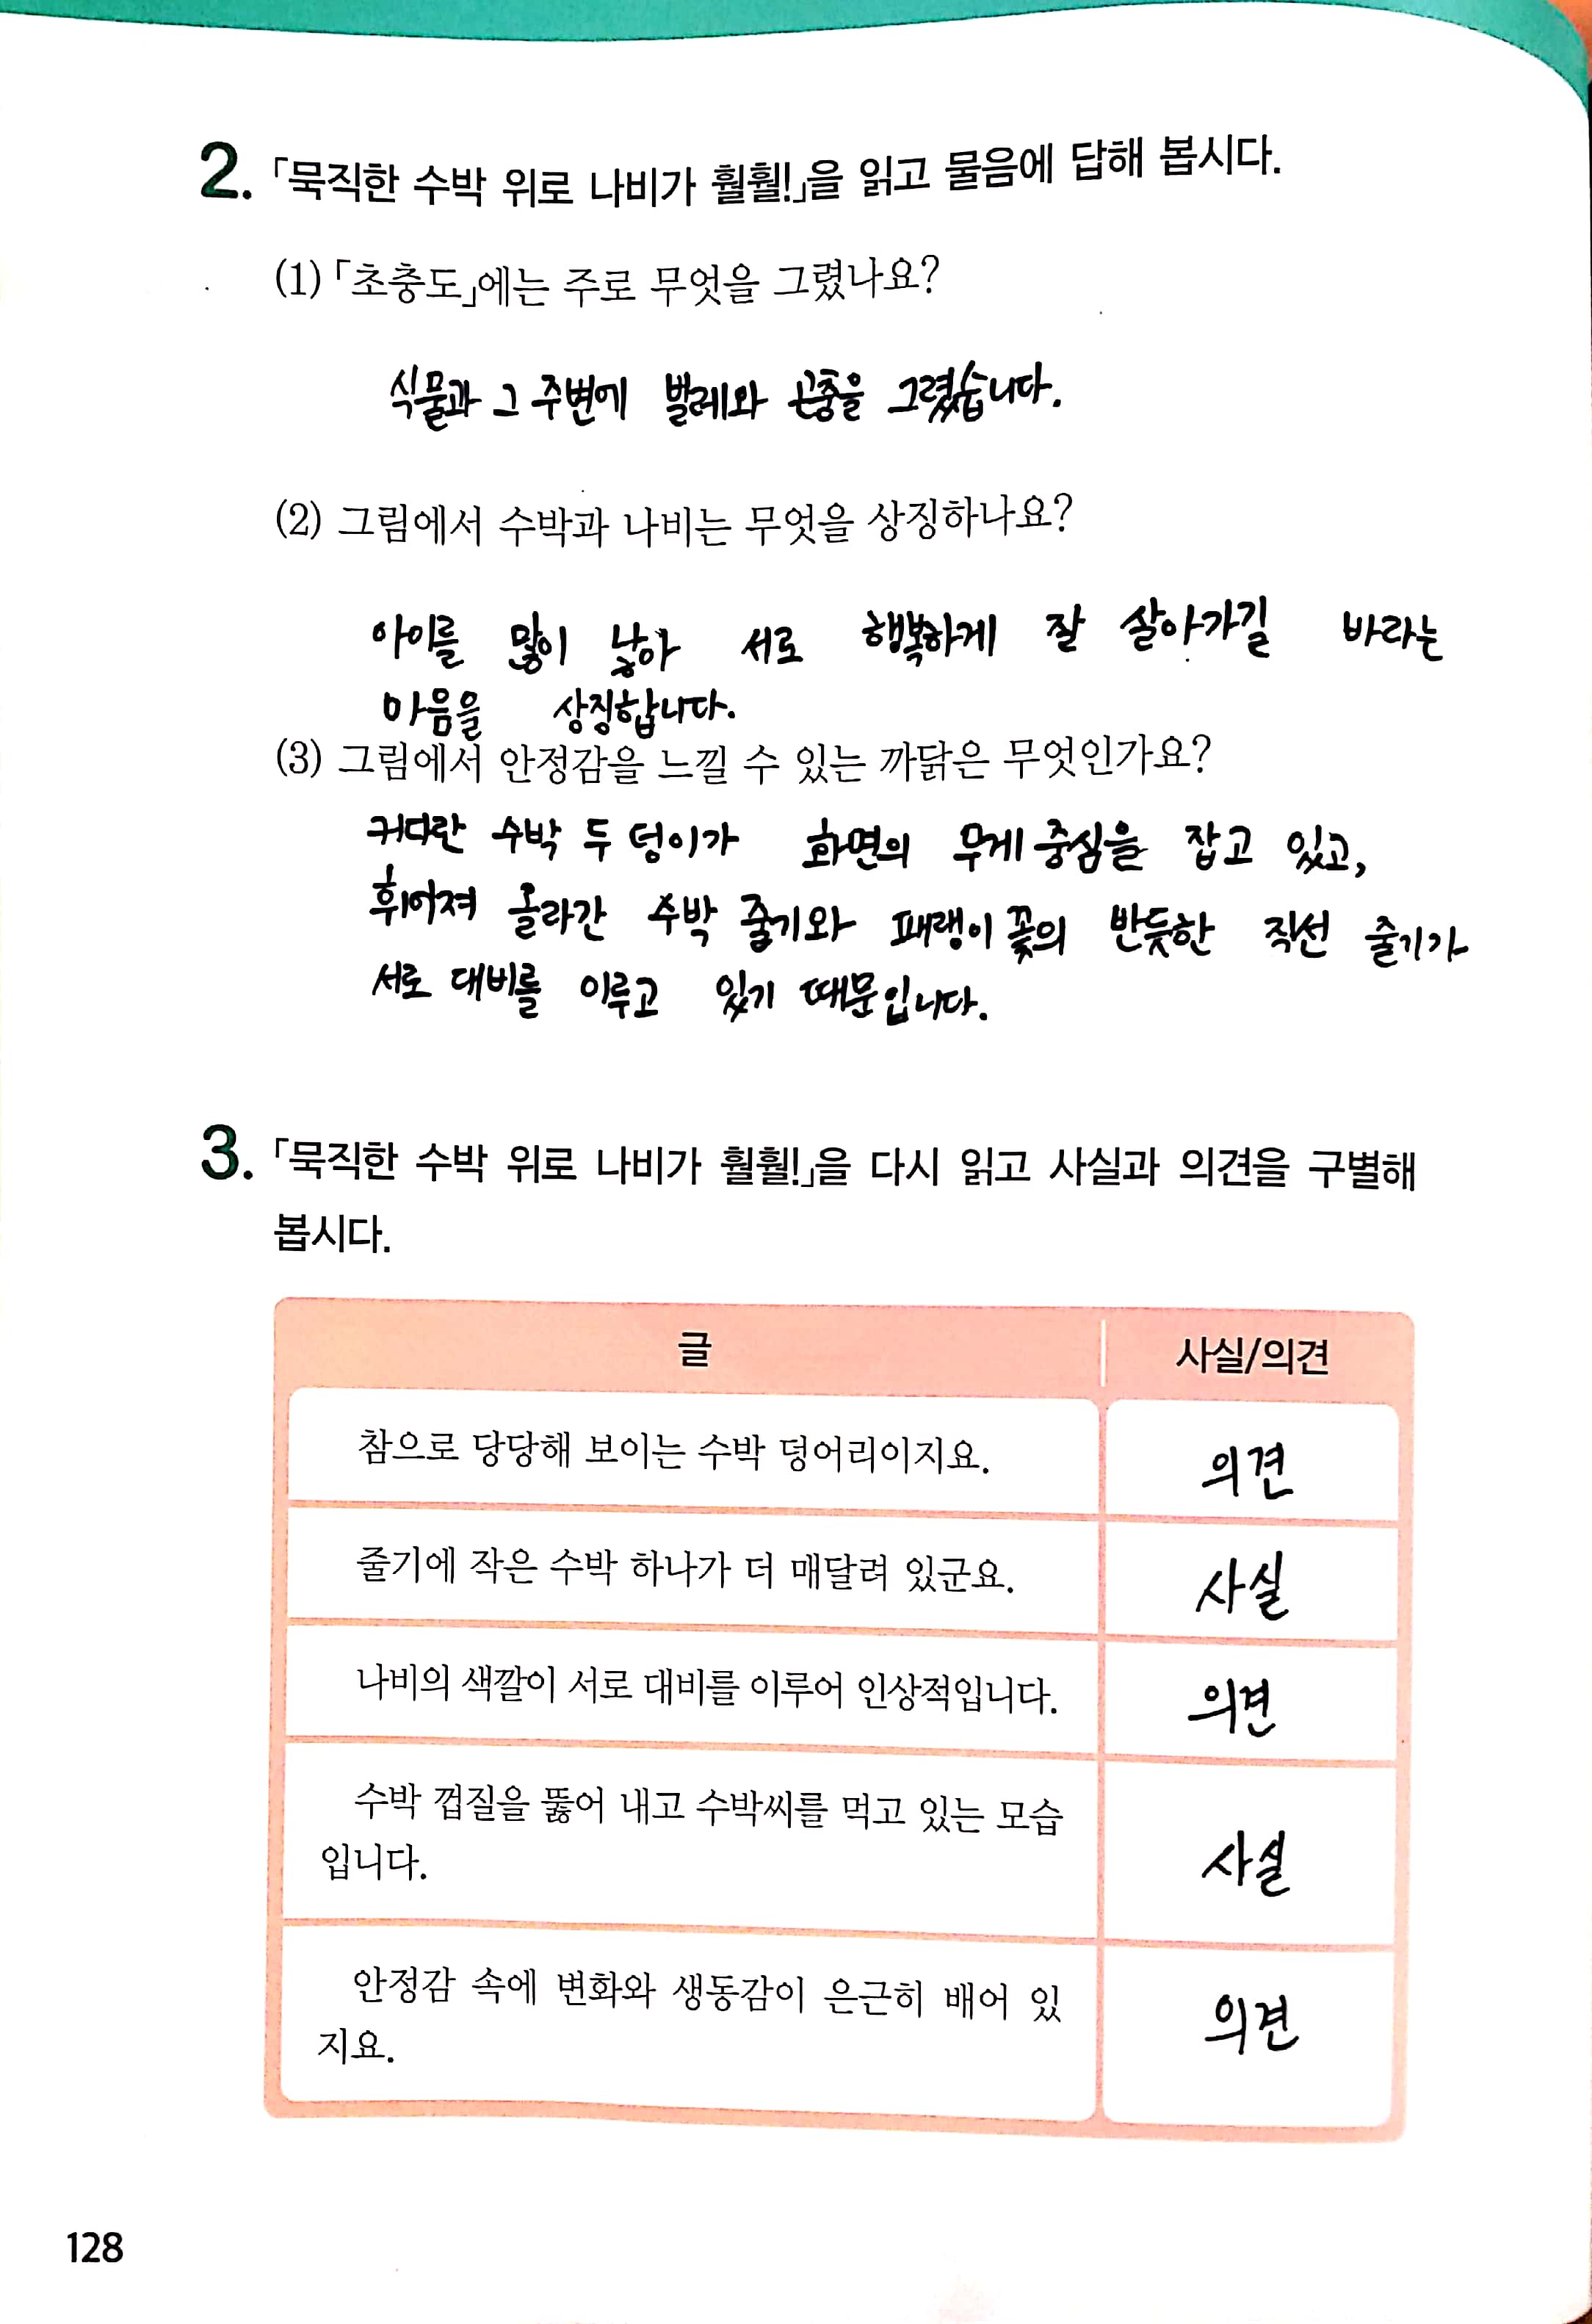 2. 「묵직한 수박 위로 나비가 훨훨!」을 읽고 물음에 답해 봅시다.
(1) 「초충도」에는 주로 무엇을 그렸나요?
식물과 그 주변에 벌레와 곤충을 그렸습니다.
(2) 그림에서 수박과 나비는 무엇을 상징하나요?
아이를 많이 낳아 서로 행복하게 잘 살아가길 바라는
마음을 상징합니다.
(3) 그림에서 안정감을 느낄 수 있는 까닭은 무엇인가요?
커다란 수박 두 덩이가 화면의 무게 중심을 잡고 있고,
휘어져 올라간 수박 줄기와 패랭이 꽃의 반듯한 직선 줄기가
서로 대비를 이루고 있기 때문입니다.
3. 「묵직한 수박 위로 나비가 훨훨!」을 다시 읽고 사실과 의견을 구별해
봅시다.
글 사실/의견
참으로 당당해 보이는 수박 덩어리이지요. 의견
줄기에 작은 수박 하나가 더 매달려 있군요. 사실
나비의 색깔이 서로 대비를 이루어 인상적입니다. 의견
수박 껍질을 뚫어 내고 수박씨를 먹고 있는 모습
입니다. 사실
안정감 속에 변화와 생동감이 은근히 배어 있
지요. 의견
128